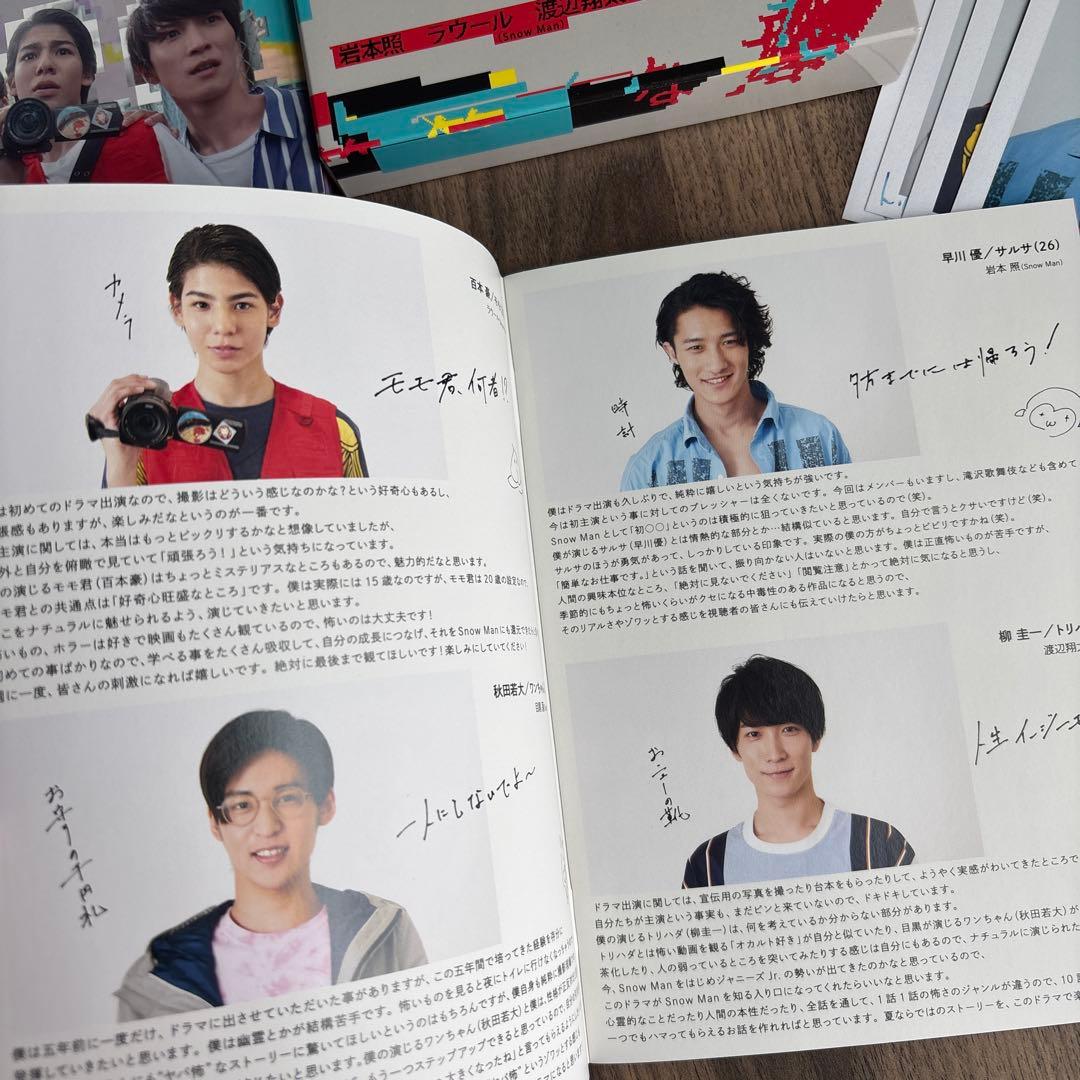 岩本照 ラウール 渡辺翔太
(Snow Man)
カメラ
モモ君、何者!?
百本 豪/モモ
は初めてのドラマ出演なので、撮影はどういう感じなのかな?という好奇心もあるし、
張感もありますが、楽しみだなというのが一番です。
主演に関しては、本当はもっとビックリするかなと想像していましたが、
外と自分を俯瞰で見ていて「頑張ろう!」という気持ちになっています。
の演じるモモ君(百本豪)はちょっとミステリアスなところもあるので、魅力的だなと思います。
モ君との共通点は「好奇心旺盛なところ」です。僕は実際には15歳なのですが、モモは20歳の設定なので、
こをナチュラルに魅せられるよう、演じていきたいと思います。
いもの、ホラーは好きで映画もたくさん観ているので、怖いのは大丈夫です!
初めての事ばかりなので、学べる事をたくさん吸収して、自分の成長につなげ、それをSnow Manにも還元で
に一度、皆さんの刺激になれば嬉しいです。絶対に最後まで観てほしいです!楽しみにしていてください!
秋田若大/ワンちゃん
お守りの千円札
一人にしないでよ〜
僕は五年前に一度だけ、ドラマに出させていただいた事がありますが、この五年間で培ってきた経験を存分に
発揮していきたいと思います。僕は幽霊とかが結構苦手です。怖いものを見ると夜にトイレに行けなくなっちゃう
"ヤバ怖"なストーリーに驚いてほしいというのはもちろんですが、僕自身も純粋に
います。僕の演じるワンちゃん(秋田若大)と僕は、性格が正反対
もう一つステップアップできると思っているので、
大きくなったね」と言ってもらえるように
"ヤバ怖"というゾワっとする
早川 優/サルサ(26)
岩本 照(Snow Man)
時計
夕方までには帰ろう!
僕はドラマ出演も久しぶりで、純粋に嬉しいという気持ちが強いです。
今は初主演という事に対してのプレッシャーは全くないです。今回はメンバーもいますし、滝沢歌舞伎なども含めて
Snow Manとして「初○○」というのは積極的に狙っていきたいと思っているので(笑)。
僕が演じるサルサ(早川優)とは情熱的な部分とか…結構似ていると思います。自分で言うとクサいですけど(笑)。
サルサのほうが勇気があって、しっかりしている印象です。実際の僕の方がちょっとビビリですかね(笑)。
「簡単なお仕事です。」という話を聞いて、振り向かない人はいないと思います。僕は正直怖いものが苦手ですが、
人間の興味本位なところ、「絶対に見ないでください」「閲覧注意」とかって絶対に気になると思うし、
季節的にもちょっと怖いくらいがクセになる中毒性のある作品になると思うので、
そのリアルさやゾワッとする感じを視聴者の皆さんにも伝えていけたらと思います。
柳 圭一/トリハ
渡辺翔太
おニューの靴
人生イージーモ
ドラマ出演に関しては、宣伝用の写真を撮ったり台本をもらったりして、ようやく実感がわいてきたところで
自分たちが主演という事実も、まだピンと来ていないので、ドキドキしています。
僕の演じるトリハダ(柳圭一)は、何を考えているか分からない部分があります。
トリハダとは怖い動画を観る「オカルト好き」が自分と似ていたり、目黒が演じるワンちゃん(秋田若大)が
茶化したり、人の弱っているところを突いてみたりする感じは自分にもあるので、ナチュラルに演じられた
今、Snow Manをはじめジャニーズ Jr.の勢いが出てきたのかなと思っているので、
このドラマが Snow Man を知る入り口になってくれたらいいなと思います。
心霊的なことだったり人間の本性だったり、全話を通して、1話1話の怖さのジャンルが違うので、10
一つでもハマってもらえるお話を作れればと思っています。夏ならではのストーリーを、このドラマで楽